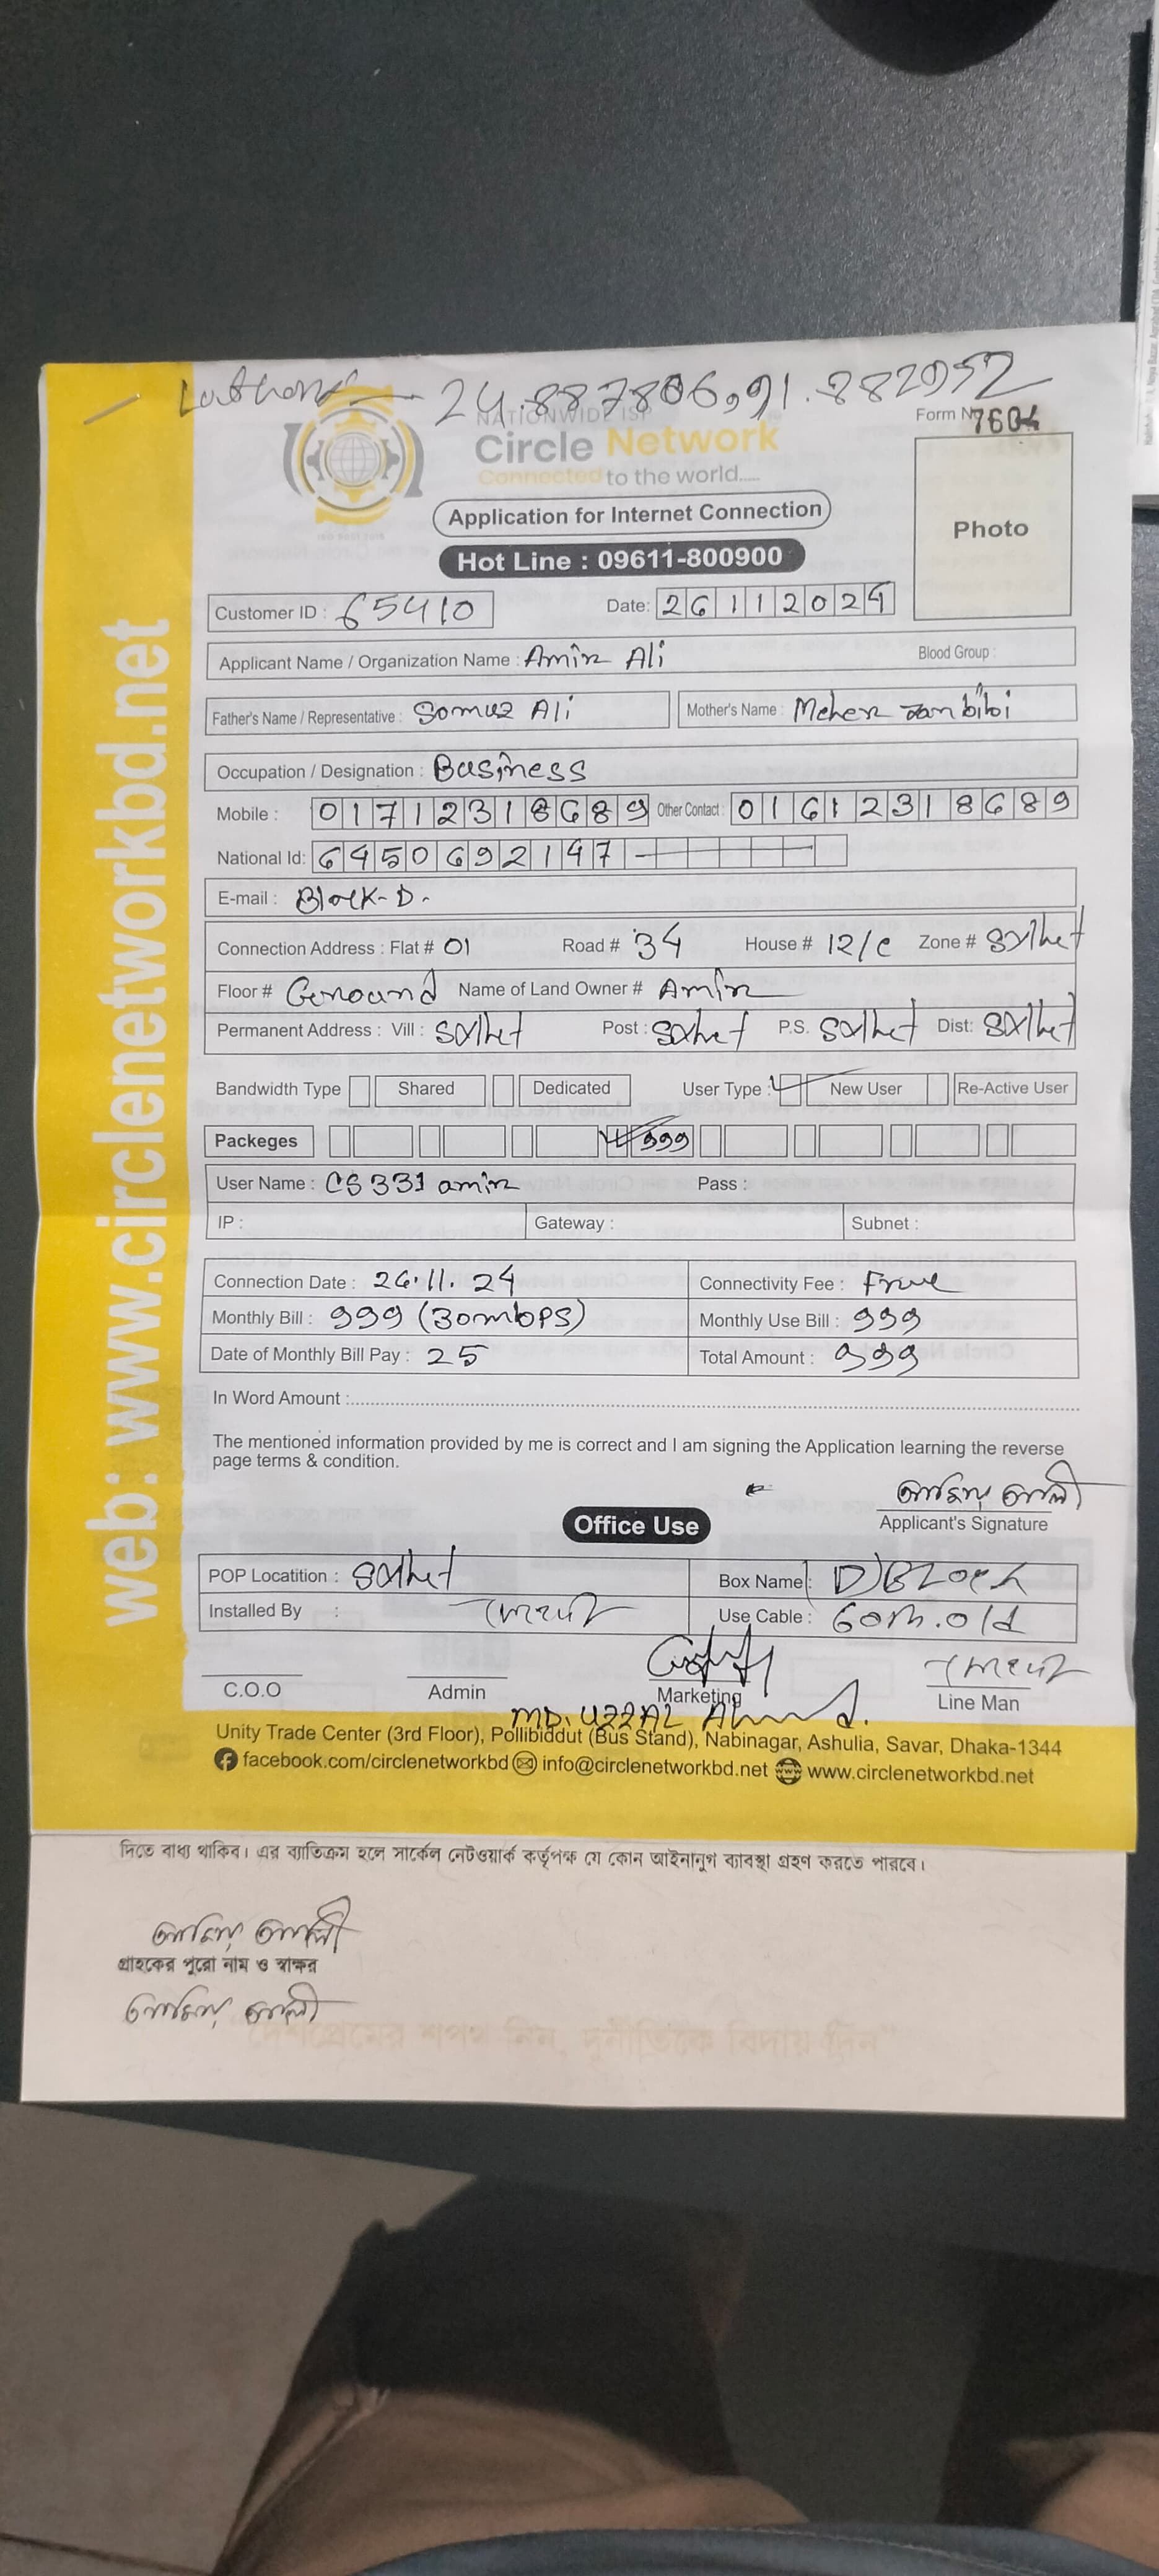 24.887806,91.882952
NATIONWIDE ISP
Circle Network
Connected to the world.....
Form No 7604
Application for Internet Connection
Photo
Hot Line : 09611-800900
Customer ID : 65410 Date: 26112024
Applicant Name / Organization Name : Amin Ali Blood Group :
Father's Name / Representative : Somuz Ali Mother's Name : Meher Jan bibi
Occupation / Designation : Business
Mobile : 01712318689 Other Contact : 01612318689
National Id: 6450692147
E-mail : Block-D.
Connection Address : Flat # 01 Road # 34 House # 12/c Zone # Sylhet
Floor # Ground Name of Land Owner # Amin
Permanent Address : Vill : Sylhet Post : Sylhet P.S. Sylhet Dist: Sylhet
Bandwidth Type Shared Dedicated User Type : New User Re-Active User
Packeges 999
User Name : CS331 amin Pass :
IP : Gateway : Subnet :
Connection Date : 26.11.24 Connectivity Fee : Free
Monthly Bill : 999 (30mbps) Monthly Use Bill : 999
Date of Monthly Bill Pay : 25 Total Amount : 999
In Word Amount :
The mentioned information provided by me is correct and I am signing the Application learning the reverse
page terms & condition.
আমিন আলী
Applicant's Signature
Office Use
POP Locatition : Sylhet Box Name : D/Block
Installed By : Use Cable : 60m.old
C.O.O Admin Marketing Line Man
MD. UZZAL
Unity Trade Center (3rd Floor), Pollibiddut (Bus Stand), Nabinagar, Ashulia, Savar, Dhaka-1344
facebook.com/circlenetworkbd info@circlenetworkbd.net www.circlenetworkbd.net
web: www.circlenetworkbd.net
দিতে বাধ্য থাকিব। এর ব্যতিক্রম হলে সার্কেল নেটওয়ার্ক কর্তৃপক্ষ যে কোন আইনানুগ ব্যবস্থা গ্রহণ করতে পারবে।
আমিন আলী
গ্রাহকের পুরো নাম ও স্বাক্ষর
আমিন আলী